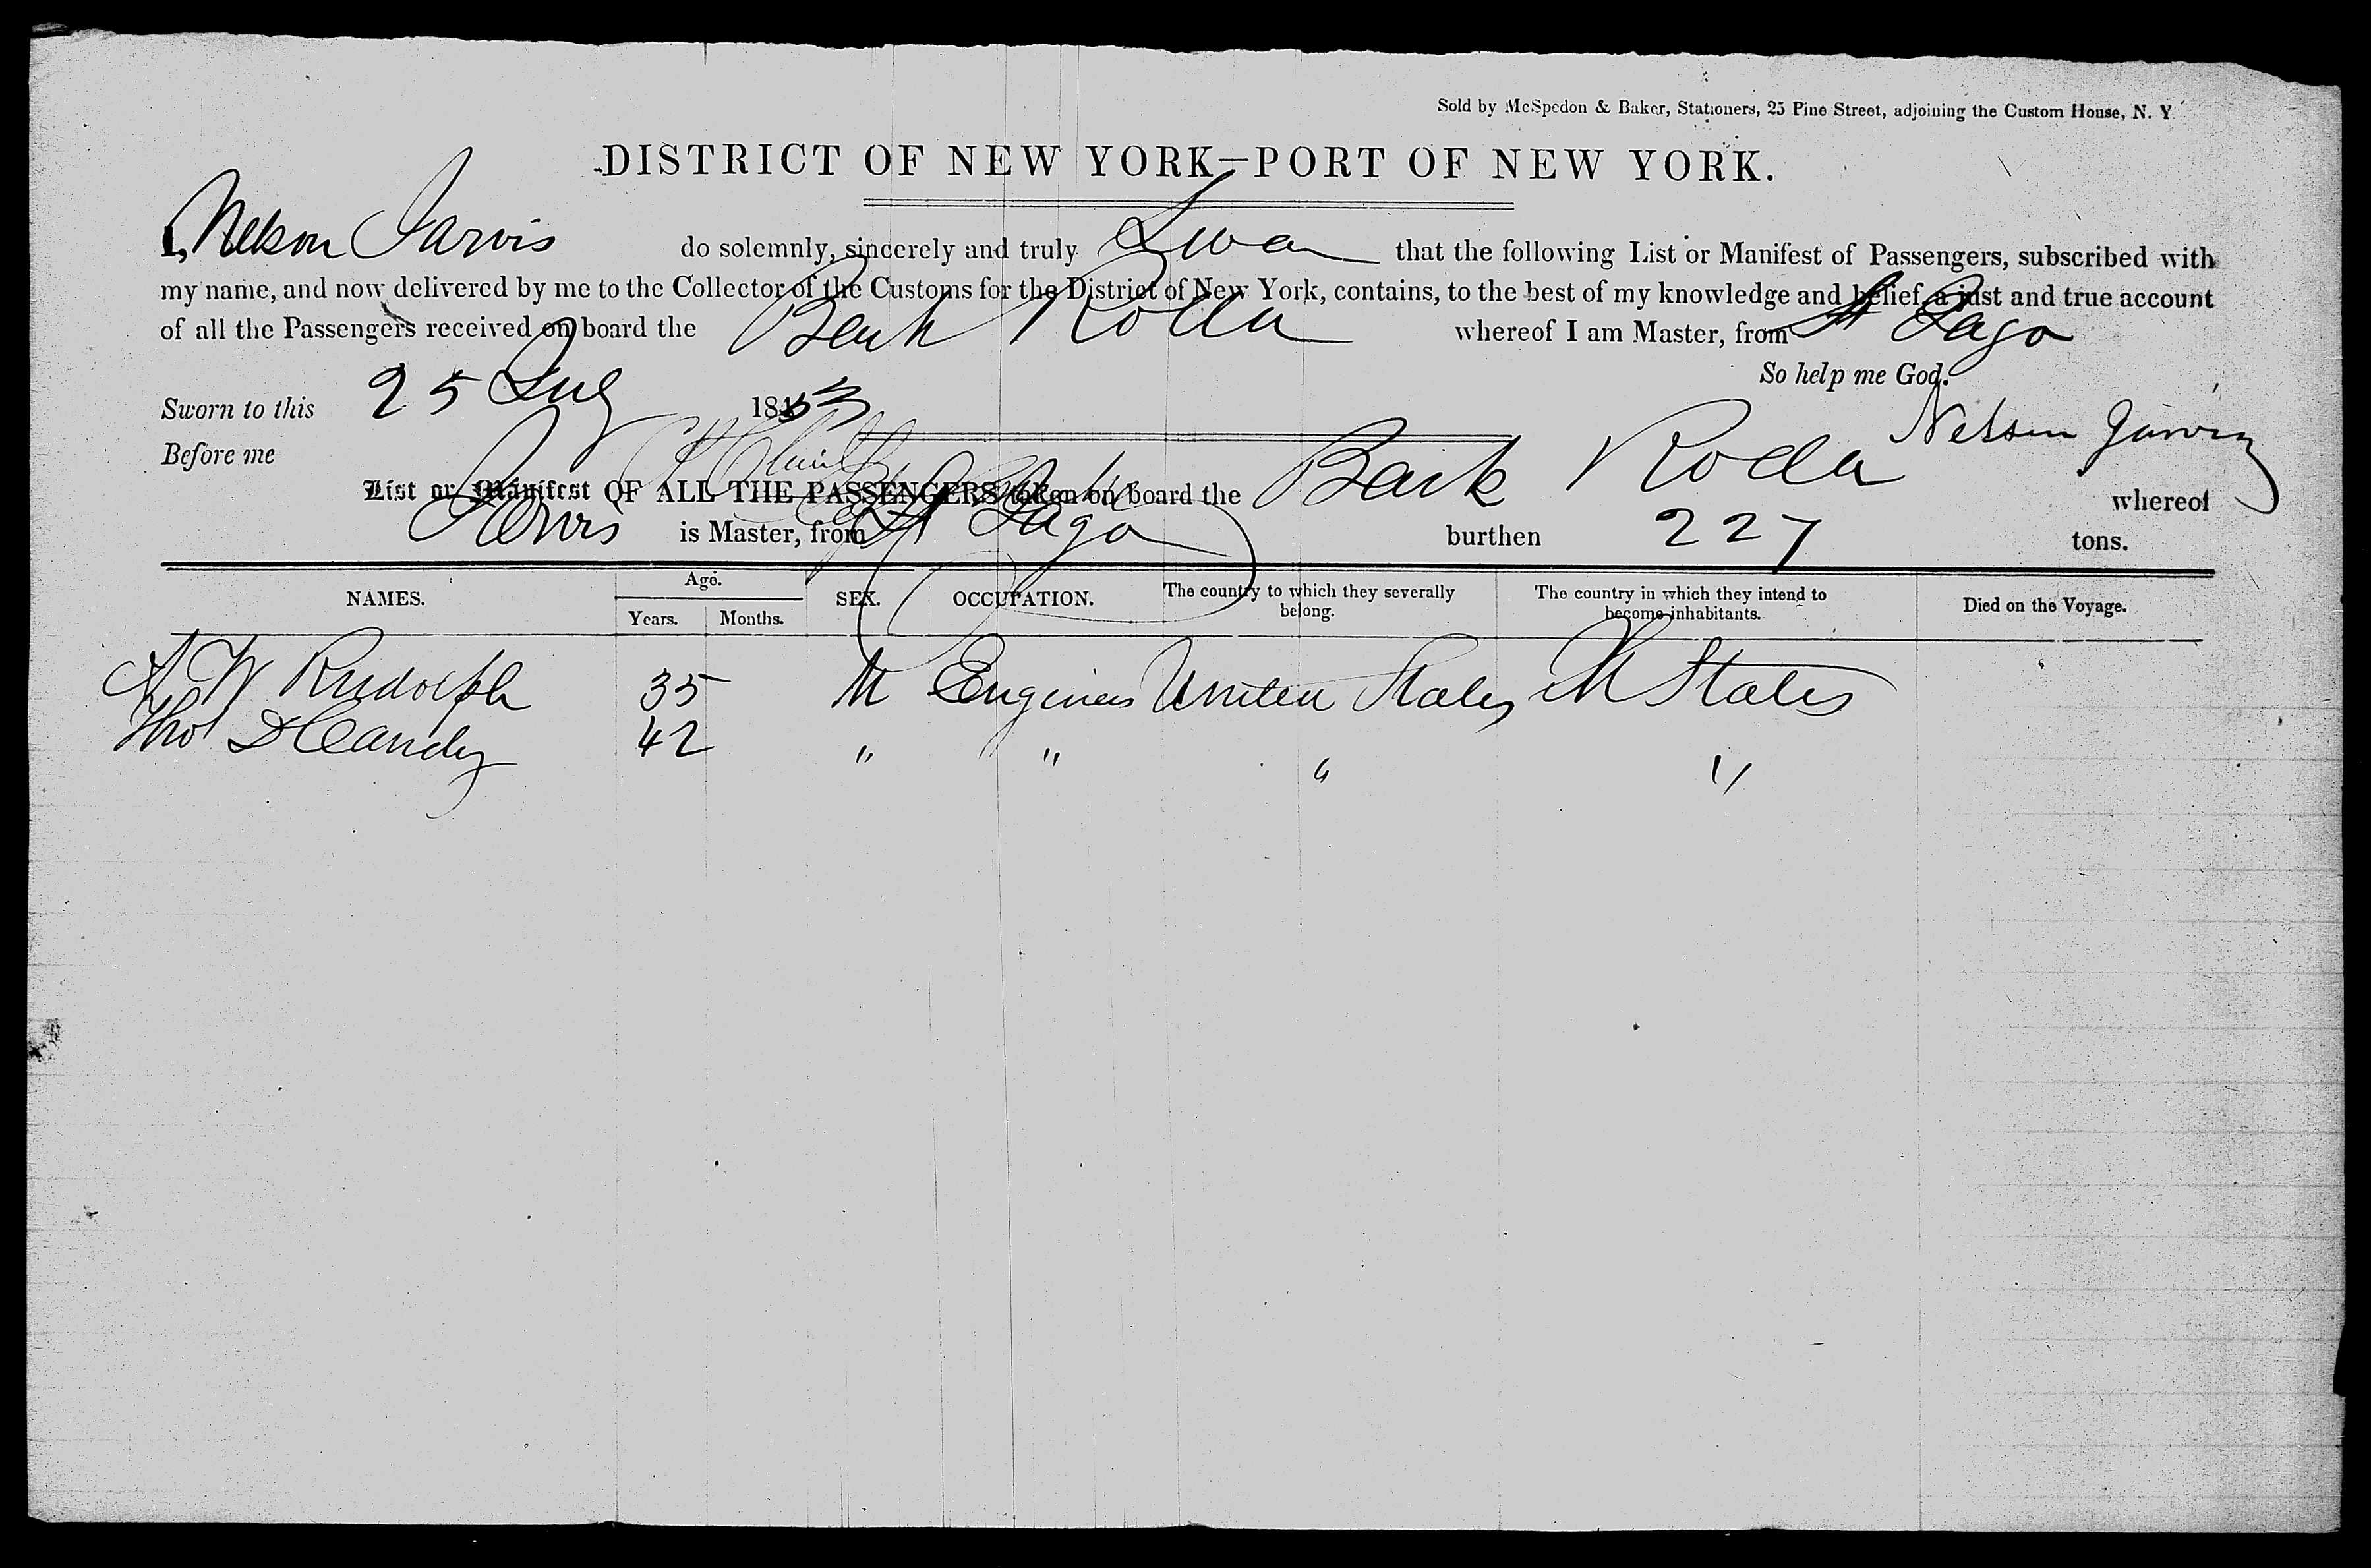 Sold by McSpedon & Baker, Stationers, 25 Pine Street, adjoining the Custom House, N. Y
DISTRICT OF NEW YORK—PORT OF NEW YORK.
I, Nelson Jarvis do solemnly, sincerely and truly Swear that the following List or Manifest of Passengers, subscribed with
my name, and now delivered by me to the Collector of the Customs for the District of New York, contains, to the best of my knowledge and belief, a just and true account
of all the Passengers received on board the Bark Roda whereof I am Master, from St Jago
So help me God.
Sworn to this 25 Aug 1853
Nelson Jarvis
Before me
List or Manifest OF ALL THE PASSENGERS taken on board the Bark Roda whereof
Jarvis is Master, from St Jago burthen 227 tons.
NAMES. Age. Years. Months. SEX. OCCUPATION. The country to which they severally belong. The country in which they intend to become inhabitants. Died on the Voyage.
A W Rudolph 35 M Engineer United States U States
Thos D Candy 42 " " " "